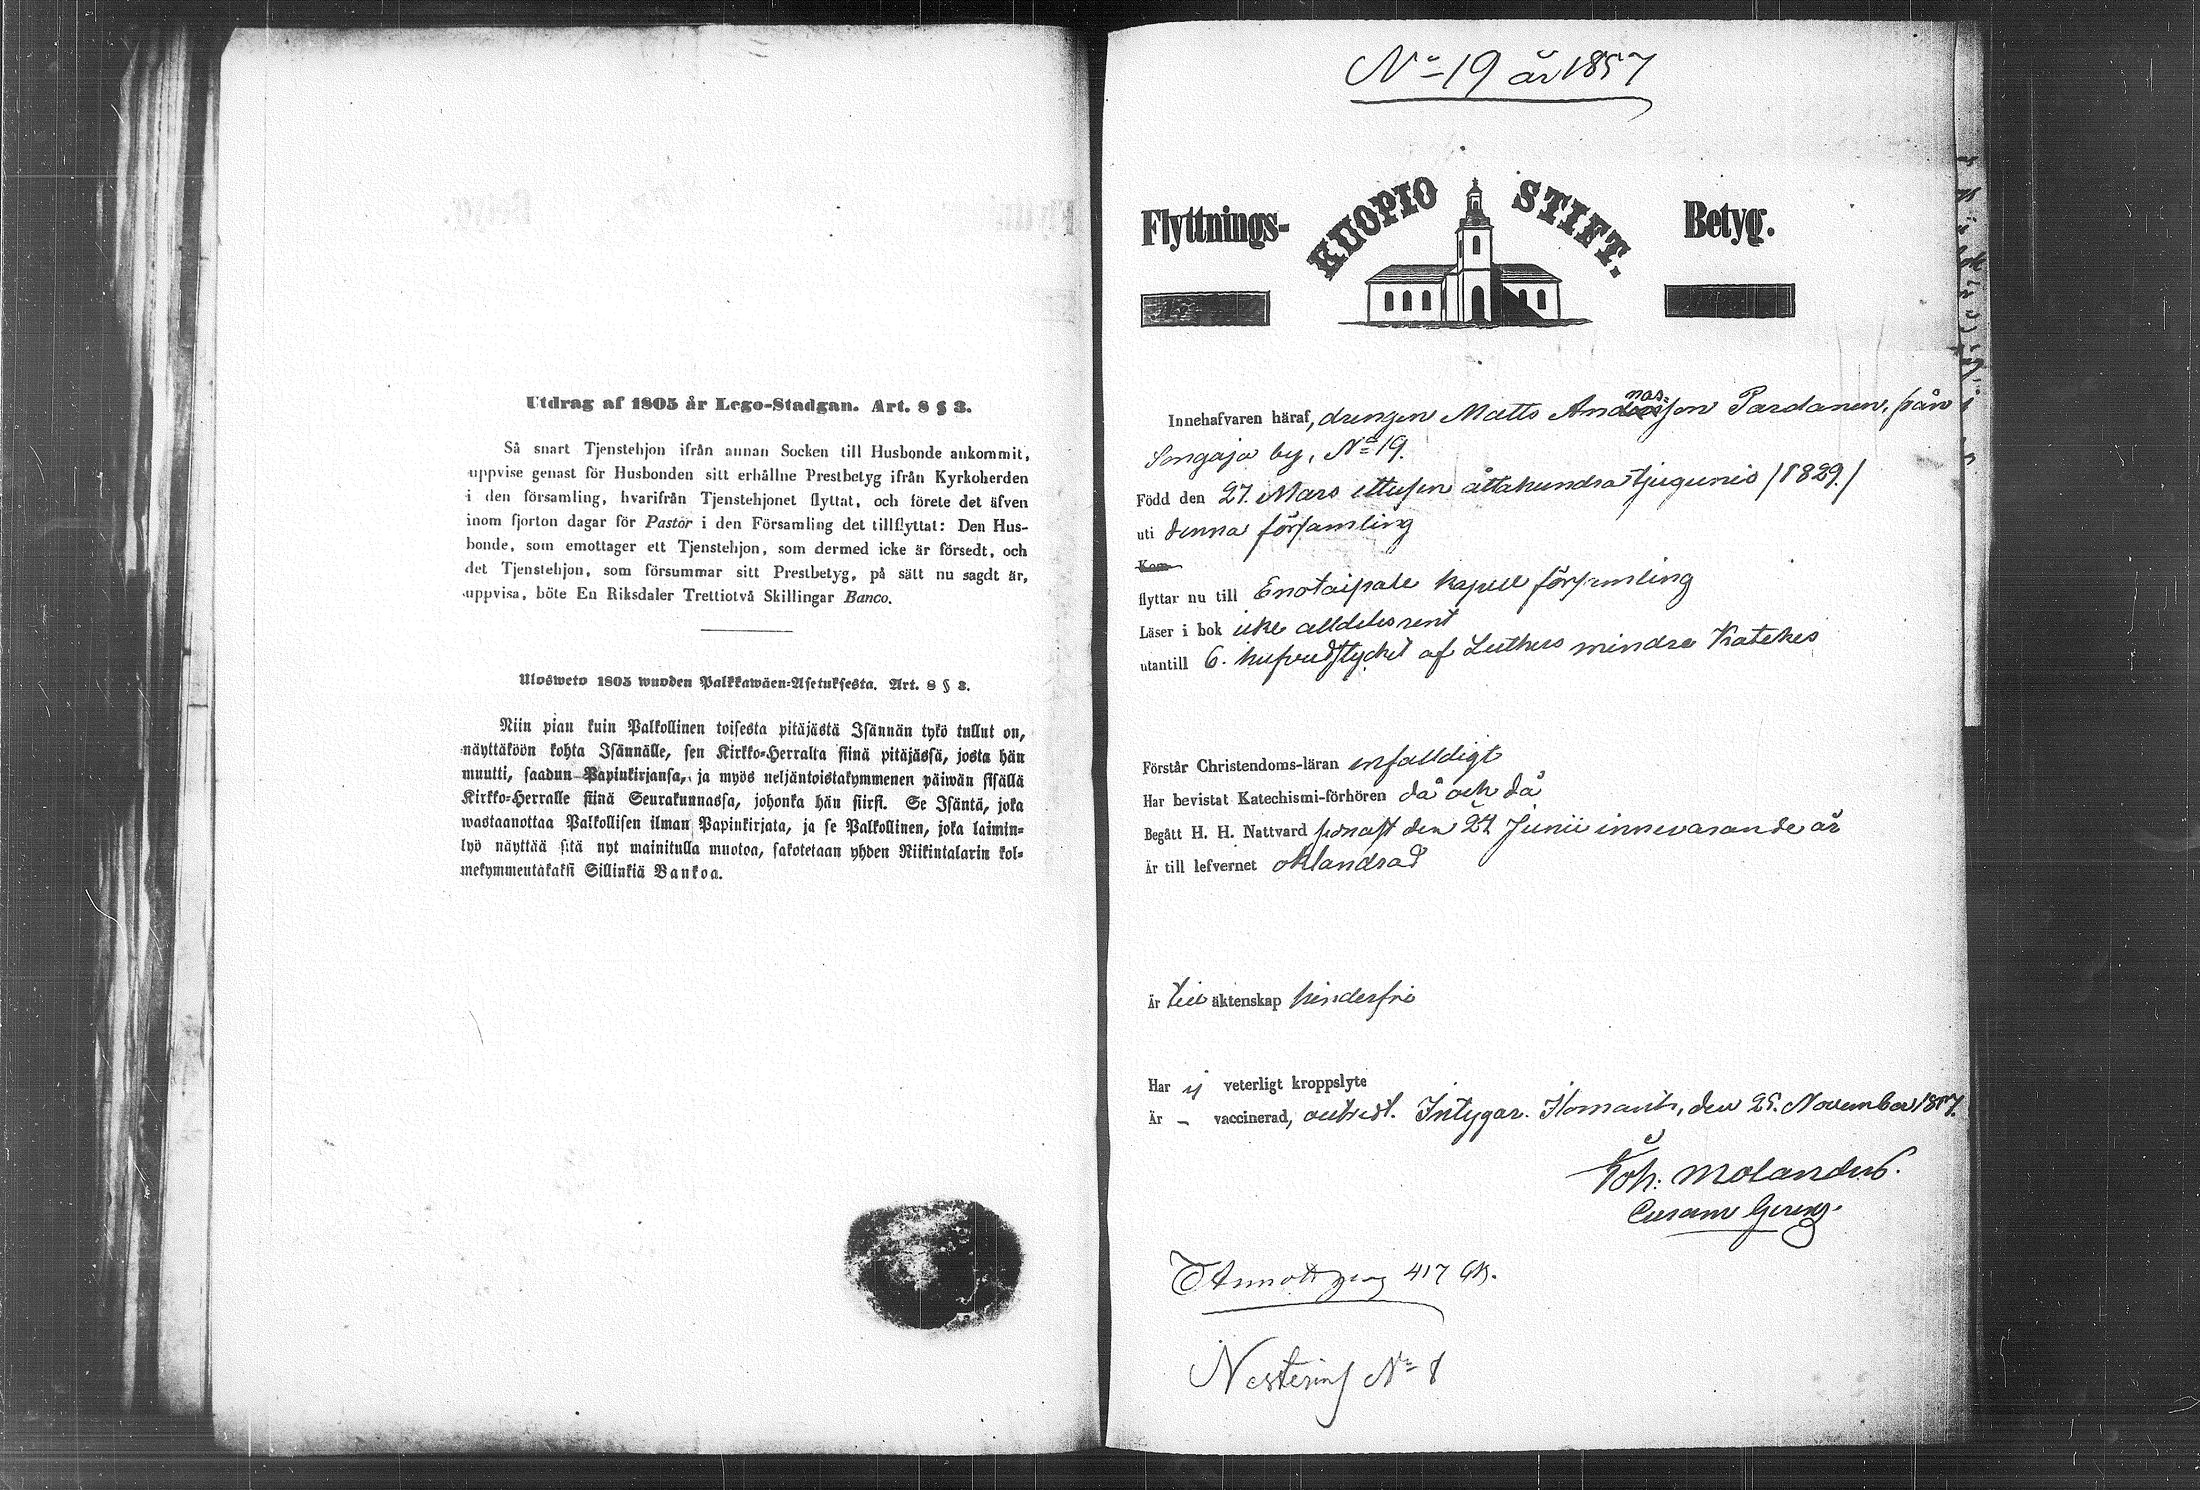 Utdrag af 1805 år Lego-Stadgan. Art. 8 § 3.
Så snart Tjenstehjon ifrån annan Socken till Husbonde ankommit,
uppvise genast för Husbonden sitt erhållne Prestbetyg ifrån Kyrkoherden
i den församling, hvarifrån Tjenstehjonet flyttat, och förete det äfven
inom fjorton dagar för Pastor i den Församling det tillflyttat: Den Hus-
bonde, som emottager ett Tjenstehjon, som dermed icke är försedt, och
det Tjenstehjon, som försummar sitt Prestbetyg, på sätt nu sagdt är,
uppvisa, böte En Riksdaler Trettiotvå Skillingar Banco.
Ulosweto 1805 wuoden Palkkawäen-Asetuksesta. Art. 8 § 3.
Niin pian kuin Palkollinen toisesta pitäjästä Isännän tykö tullut on,
näyttäköön kohta Isännälle, sen Kirkko-Herralta siinä pitäjässä, josta hän
muutti, saadun Papinkirjansa, ja myös neljäntoistakymmenen päiwän sisällä
Kirkko-Herralle siinä Seurakunnassa, johonka hän siirsi. Se Isäntä, joka
wastaanottaa Palkollisen ilman Papinkirjata, ja se Palkollinen, joka laimin-
lyö näyttää sitä nyt mainitulla muotoa, sakotetaan yhden Riikintalarin kol-
mekymmentäkaksi Sillinkiä Bankoa.
No 19 år 1857
Flyttnings- KUOPIO STIFT. Betyg.
Innehafvaren häraf, drengen Matts Andersson Pardanen, från
nas
Songaja by, No 19.
Född den 27. Mars ettusen åttahundratjugunio /1829./
uti denna församling
Kom
flyttar nu till Enotaipale kapell församling
Läser i bok icke alldeles rent
utantill 6. hufvudstycket af Luthers mindre Katekes
Förstår Christendoms-läran enfalldigt
Har bevistat Katechismi-förhören då och då
Begått H. H. Nattvard senast den 24 Junii innevarande år
Är till lefvernet oklandrad
Är till äktenskap hinderfri
Har ej veterligt kroppslyte
Är – vaccinerad, attest. Intygar. Ilomants, den 25. November 1857.
Joh. Molander.
417
No 8